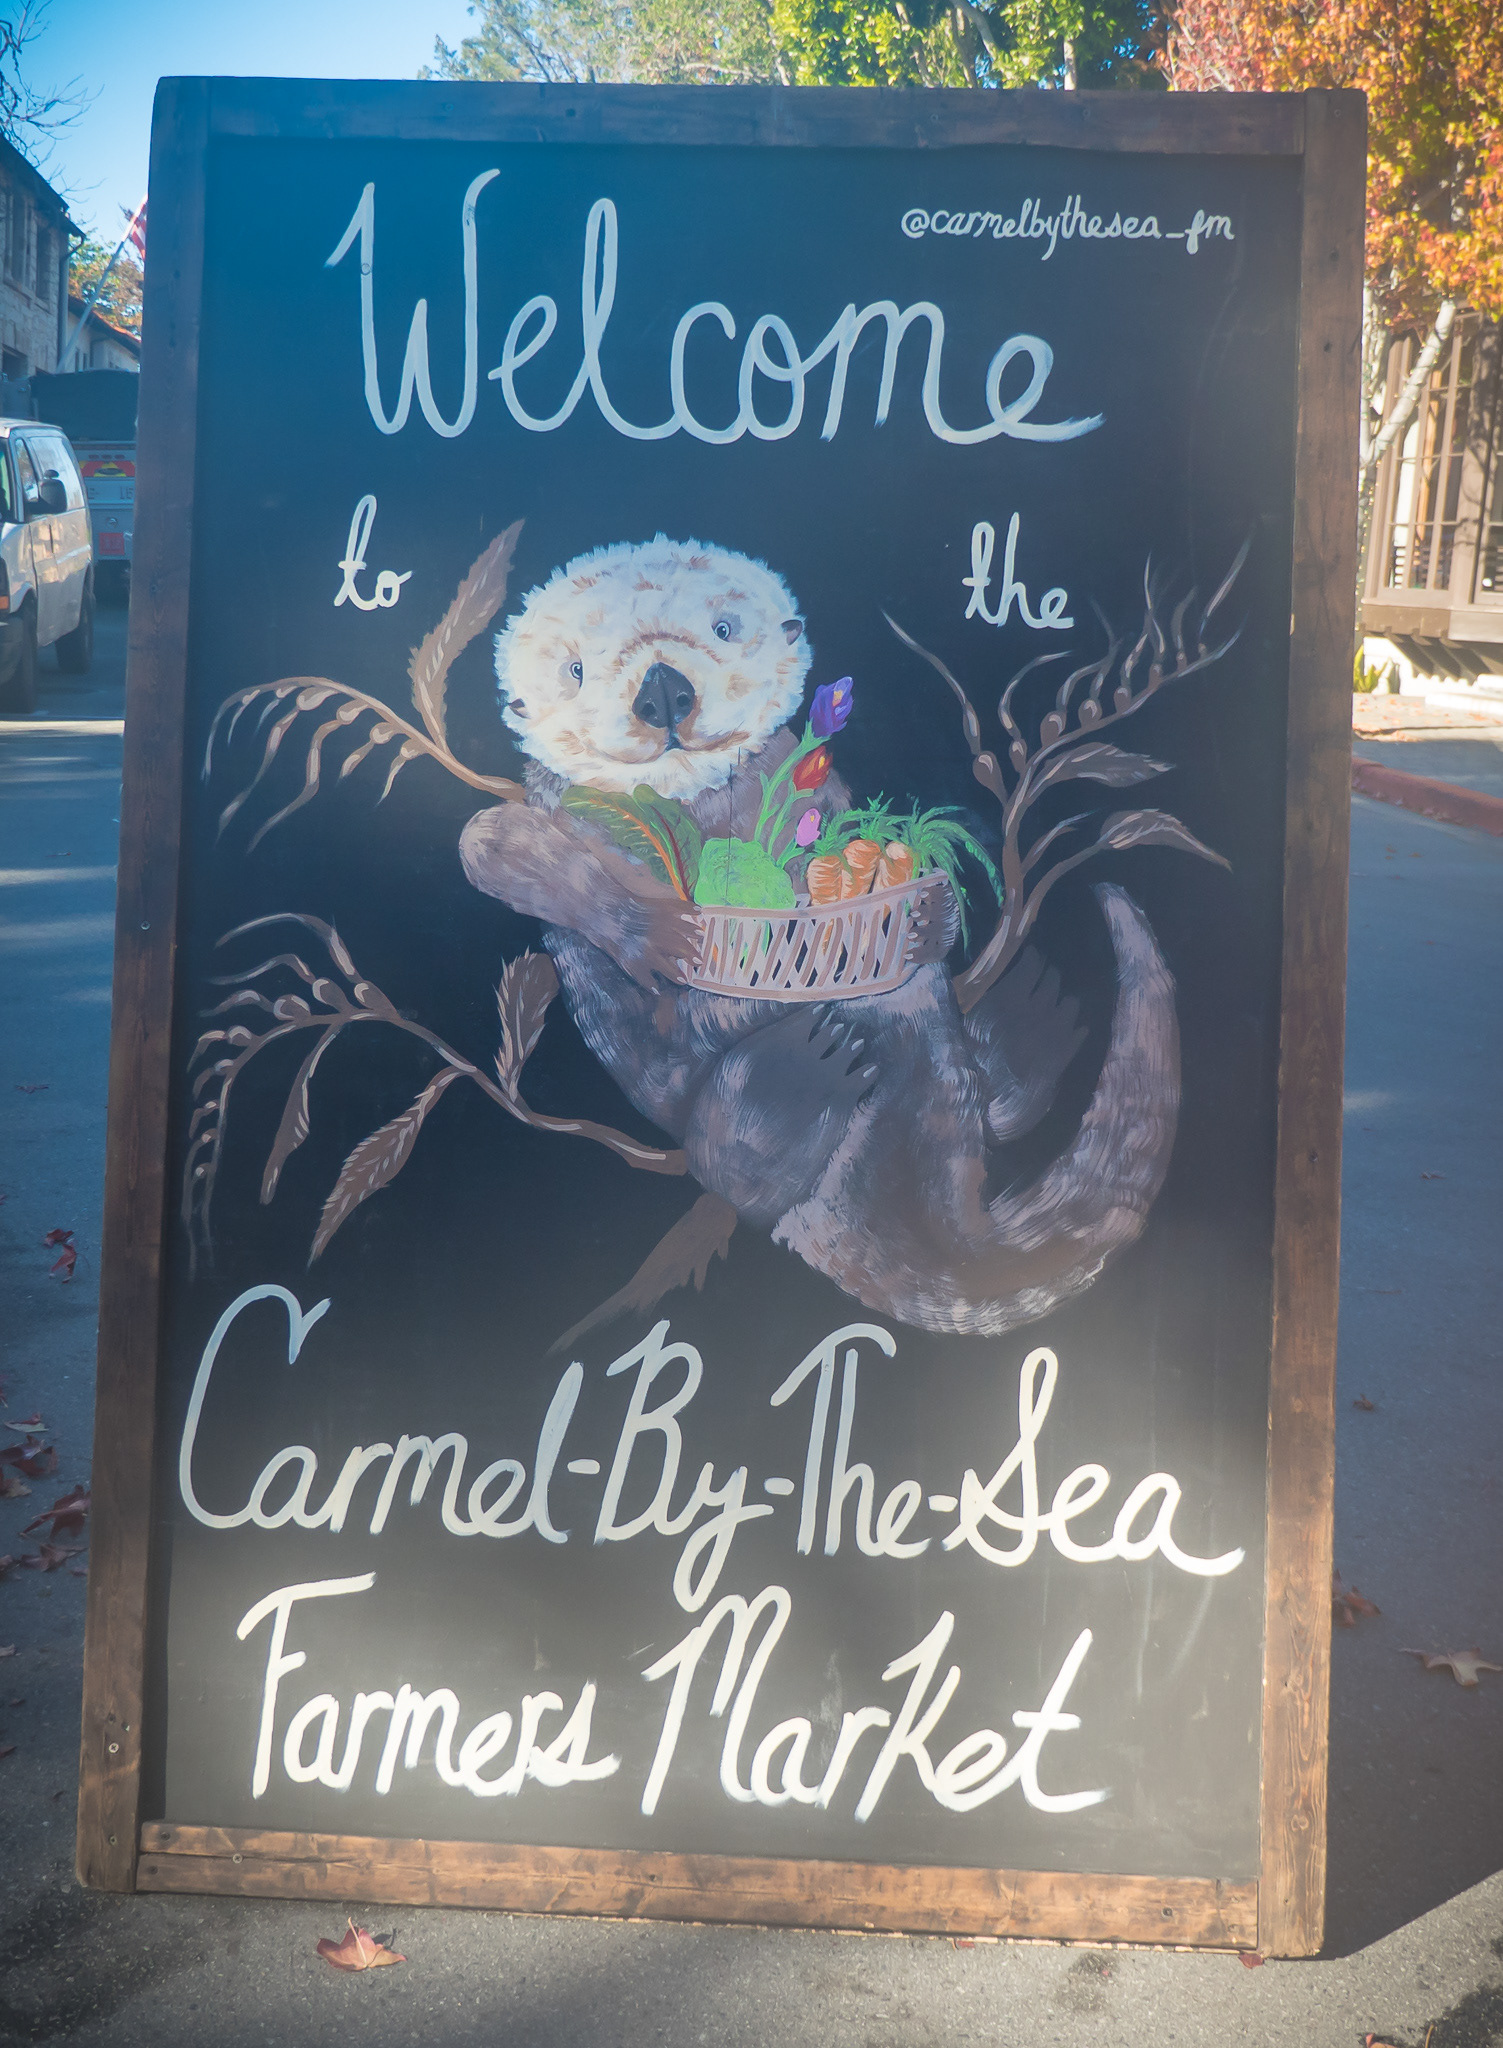 @carmelbythesea_fm
Welcome
to the
Carmel-By-The-Sea
Farmers Market